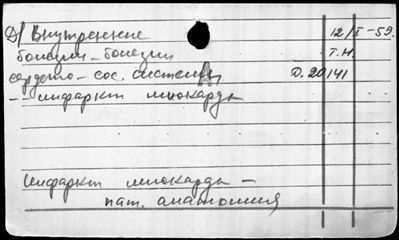 Д/ Внутренние 12/I-59.
болезни - болезни Т.Н.
сердечно-сос. системы Д. 20141
- инфаркт миокарда
Инфаркт миокарда -
пат. анатомия